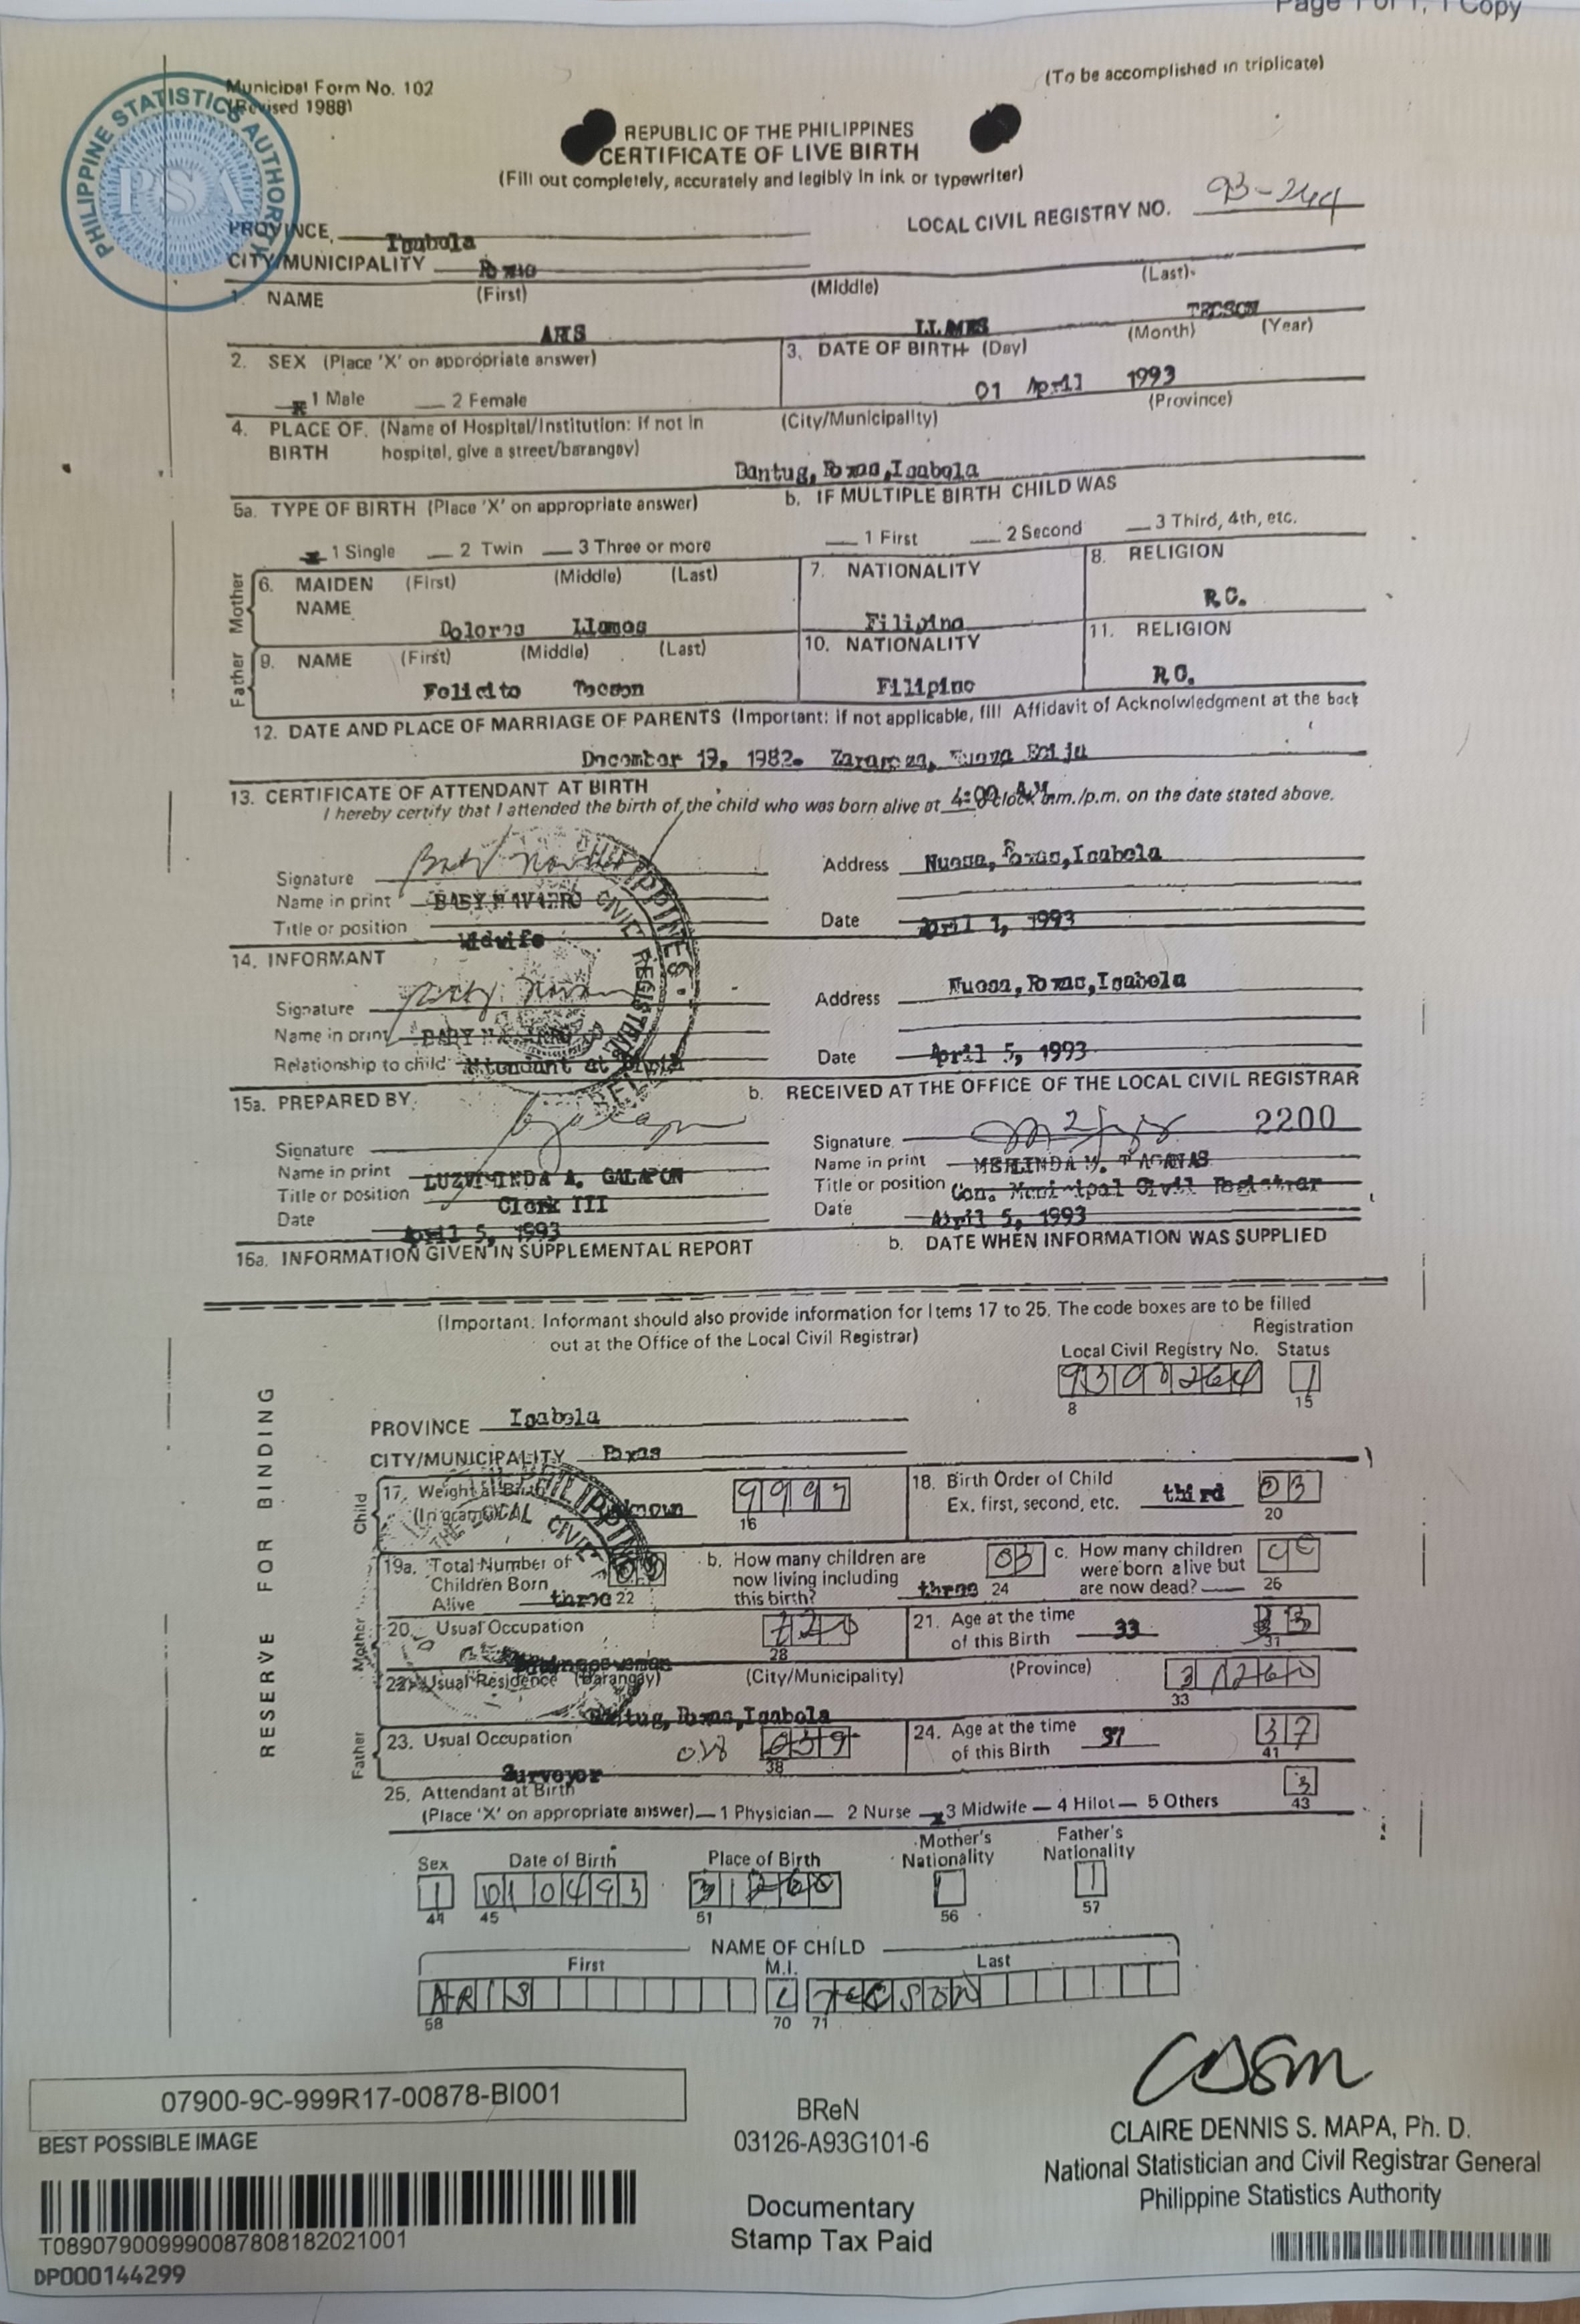 Page 1 of 1, 1 Copy
Municipal Form No. 102
(Revised 1988)
(To be accomplished in triplicate)
PHILIPPINE STATISTICS AUTHORITY
PSA
REPUBLIC OF THE PHILIPPINES
CERTIFICATE OF LIVE BIRTH
(Fill out completely, accurately and legibly in ink or typewriter)
LOCAL CIVIL REGISTRY NO.
PROVINCE Isabela
CITY/MUNICIPALITY Roxas
1. NAME (First) (Middle) (Last)
LLAMES TECSON
2. SEX (Place 'X' on appropriate answer)
x 1 Male 2 Female
3. DATE OF BIRTH (Day) (Month) (Year)
01 April 1993
4. PLACE OF BIRTH (Name of Hospital/Institution: if not in hospital, give a street/barangay) (City/Municipality) (Province)
Bantug, Roxas, Isabela
5a. TYPE OF BIRTH (Place 'X' on appropriate answer)
x 1 Single 2 Twin 3 Three or more
b. IF MULTIPLE BIRTH CHILD WAS
1 First 2 Second 3 Third, 4th, etc.
Mother
6. MAIDEN NAME (First) (Middle) (Last)
Dolores Llames
7. NATIONALITY
Filipino
8. RELIGION
R.C.
Father
9. NAME (First) (Middle) (Last)
Felicito Tecson
10. NATIONALITY
Filipino
11. RELIGION
R.C.
12. DATE AND PLACE OF MARRIAGE OF PARENTS (Important: if not applicable, fill Affidavit of Acknolwledgment at the back
December 19, 1982. Zaragoza, Nueva Ecija
13. CERTIFICATE OF ATTENDANT AT BIRTH
I hereby certify that I attended the birth of the child who was born alive at 4:00 A.M. o'clock a.m./p.m. on the date stated above.
Signature
Name in print BABY NAVARRO
Title or position Midwife
Address Nuesa, Roxas, Isabela
Date April 1, 1993
14. INFORMANT
Signature
Name in print BABY NAVARRO
Relationship to child Attendant at Birth
Address Nuesa, Roxas, Isabela
Date April 5, 1993
15a. PREPARED BY
Signature
Name in print LUZVIMINDA A. GALAPON
Title or position Clerk III
Date April 5, 1993
b. RECEIVED AT THE OFFICE OF THE LOCAL CIVIL REGISTRAR
Signature 2200
Name in print MERLINDA
Title or position Municipal Civil Registrar
Date April 5, 1993
16a. INFORMATION GIVEN IN SUPPLEMENTAL REPORT
b. DATE WHEN INFORMATION WAS SUPPLIED
(Important. Informant should also provide information for Items 17 to 25. The code boxes are to be filled
out at the Office of the Local Civil Registrar)
RESERVE FOR BINDING
Local Civil Registry No. Registration Status
8 1 15
PROVINCE Isabela
CITY/MUNICIPALITY Roxas
Child
17. Weight at Birth (In grams) Unknown
16
18. Birth Order of Child
Ex. first, second, etc. third 03
20
Mother
19a. Total Number of Children Born Alive three 22
b. How many children are now living including this birth? three 03 24
c. How many children were born alive but are now dead? 26
20. Usual Occupation
28
21. Age at the time of this Birth 33
31
22. Usual Residence (Barangay) (City/Municipality) (Province)
Bantug, Roxas, Isabela
33
Father
23. Usual Occupation
Surveyor
38
24. Age at the time of this Birth 37 37
41
25. Attendant at Birth
(Place 'X' on appropriate answer) 1 Physician 2 Nurse x 3 Midwife 4 Hilot 5 Others
3
43
Sex Date of Birth Place of Birth Mother's Nationality Father's Nationality
1 010493 1 1
44 45 51 56 57
NAME OF CHILD
First M.I. Last
ARIS L TECSON
58 70 71
07900-9C-999R17-00878-BI001
BEST POSSIBLE IMAGE
T089079009990087808182021001
DP000144299
BReN
03126-A93G101-6
Documentary
Stamp Tax Paid
CLAIRE DENNIS S. MAPA, Ph. D.
National Statistician and Civil Registrar General
Philippine Statistics Authority